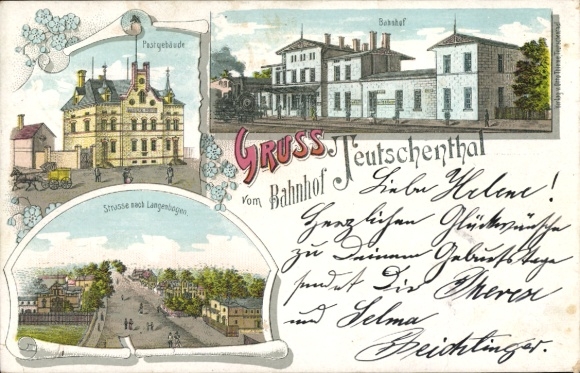 Postgebäude
Bahnhof
GRUSS
vom Bahnhof Teutschenthal
Strasse nach Langenbogen.
Liebe Helene!
Herzlichen Glückwünsche
zu Deinem Geburtstage
sendet Dir Therese
und Selma
Deichlinger.